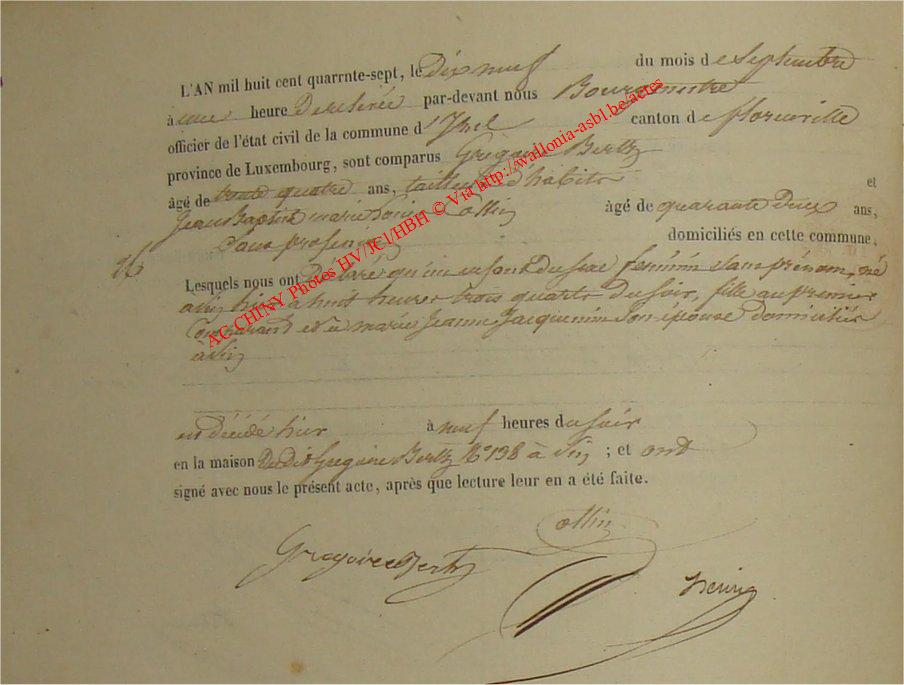 L'AN mil huit cent quarrnte-sept, le dix neuf du mois de Septembre
à une heure de relevée par-devant nous Bourgmestre
officier de l'état civil de la commune d'Izel canton de florenville
province de Luxembourg, sont comparus Gregoire Bertz
âgé de trente quatre ans, tailleur d'habits et
Jean Baptiste marie Louis Collin âgé de quarante deux ans,
Sans profession domiciliés en cette commune,
26
Lesquels nous ont déclaré qu'un enfant du sexe féminin sans prénom, né
à Pin, hier à huit heures trois quarts du soir, fille au premier
Comparant et à marie Jeanne Jacquemin son épouse domiciliés
à Pin
est décédé hier à neuf heures du soir
en la maison du dit Gregoire Bertz N° 138 à Pin ; et ont
signé avec nous le présent acte, après que lecture leur en a été faite.
Collin
Gregoire Bertz
AC CHINY Photos HV/JCl/HBH © Via http://wallonia-asbl.be/actes